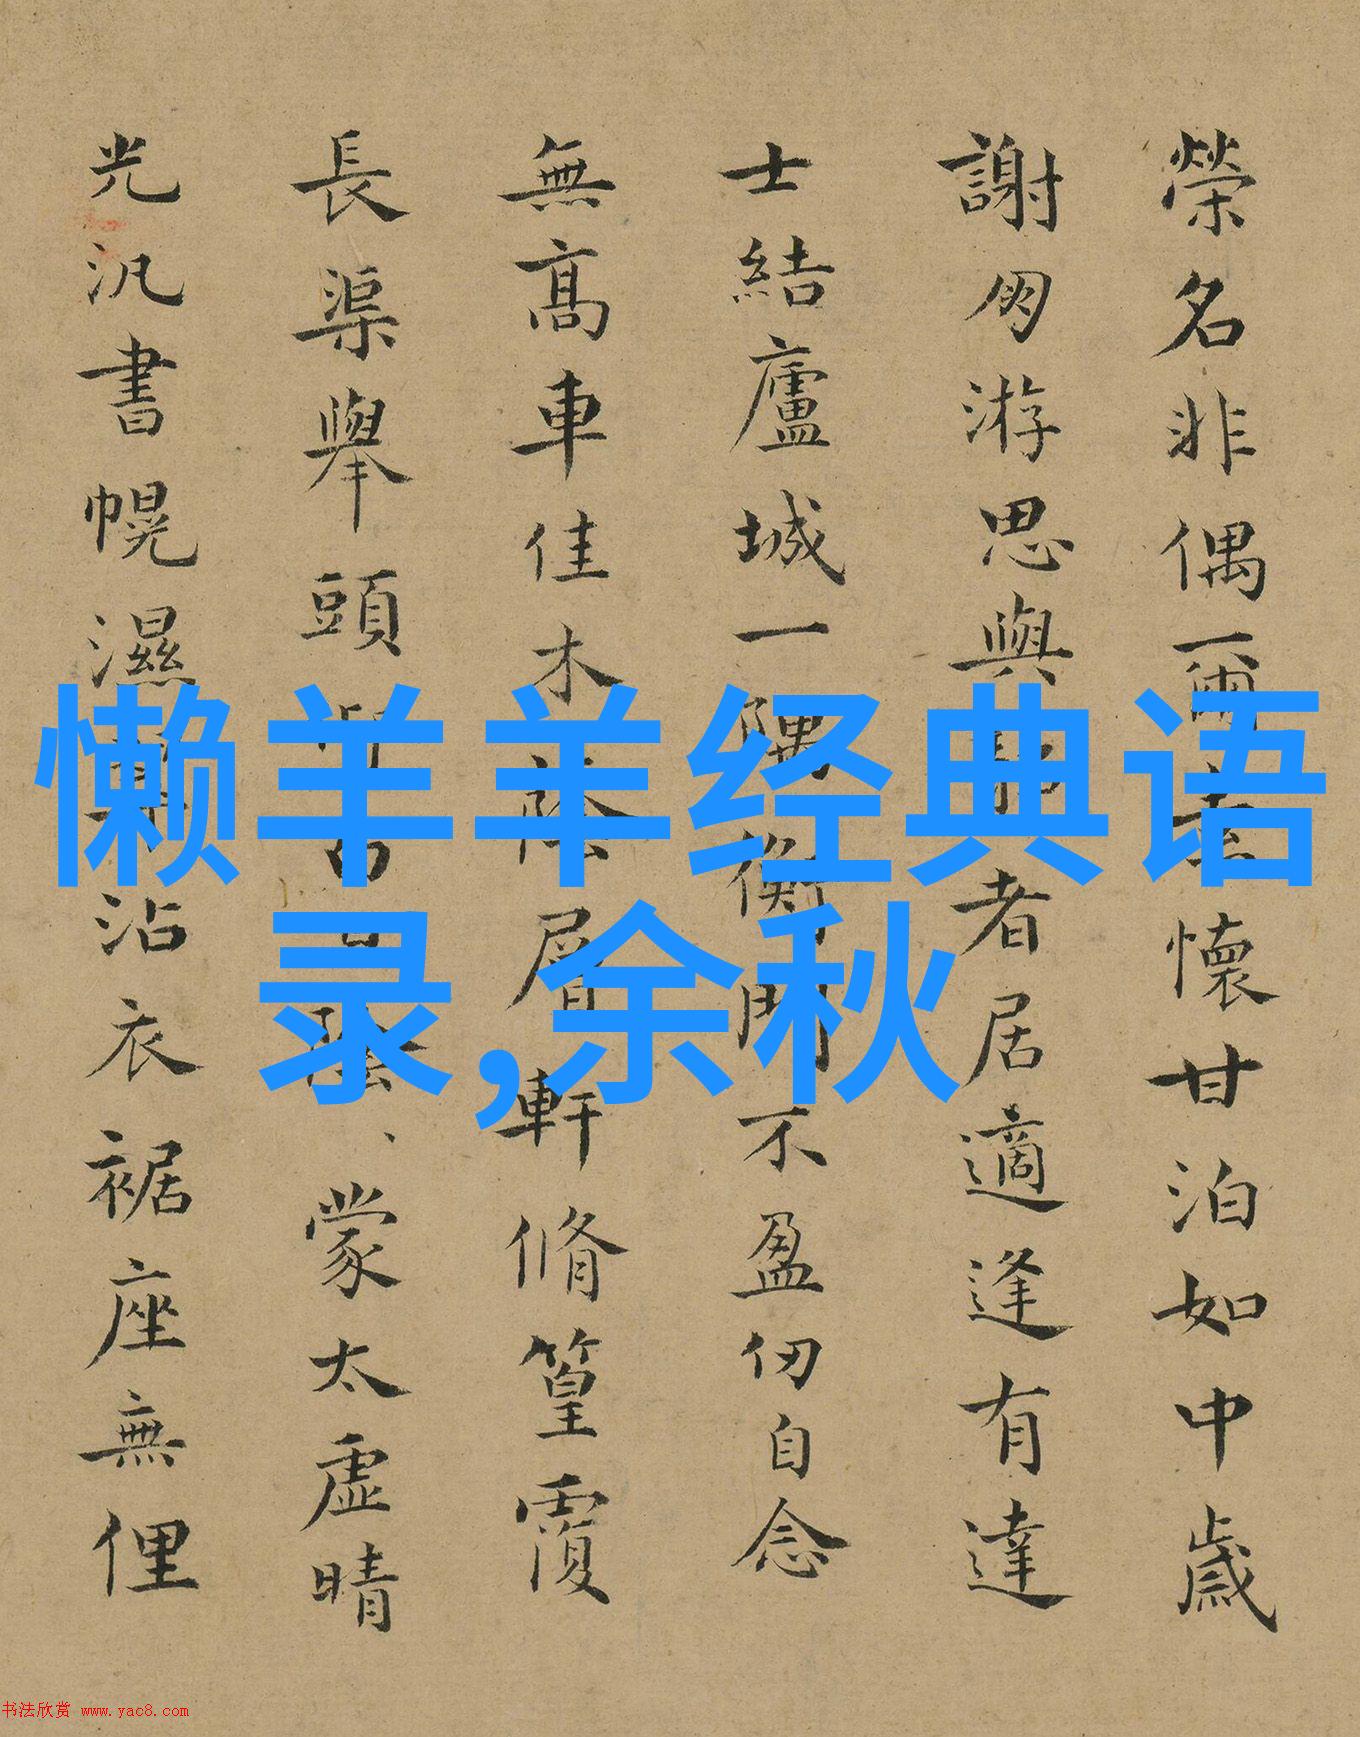 榮名非偶爾素懷甘泊如中歲
謝朋游思與者居適逢有達
士結廬城一隅衡門不盈仞自念
無高車佳木陰層軒脩篁覆
長渠舉頭陰、蒙太虛晴
光汎書幌濕沾衣裾座無俚
懒羊羊经典语
录,余秋
书法欣赏 www.yac8.com